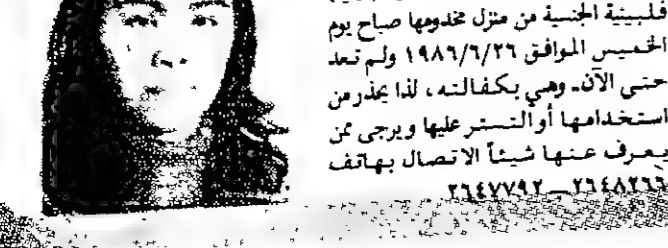 فلبينية الجنسية من منزل مخدومها صباح يوم
الخميس الموافق ١٩٨٦/٦/٢٦ ولم تعد
حتى الآن. وهي بكفالته، لذا يحذر من
استخدامها أو التستر عليها ويرجى ممن
يعرف عنها شيئاً الاتصال بهاتف
٢٦٤٨٢٦٦ — ٢٦٤٧٧٩٢